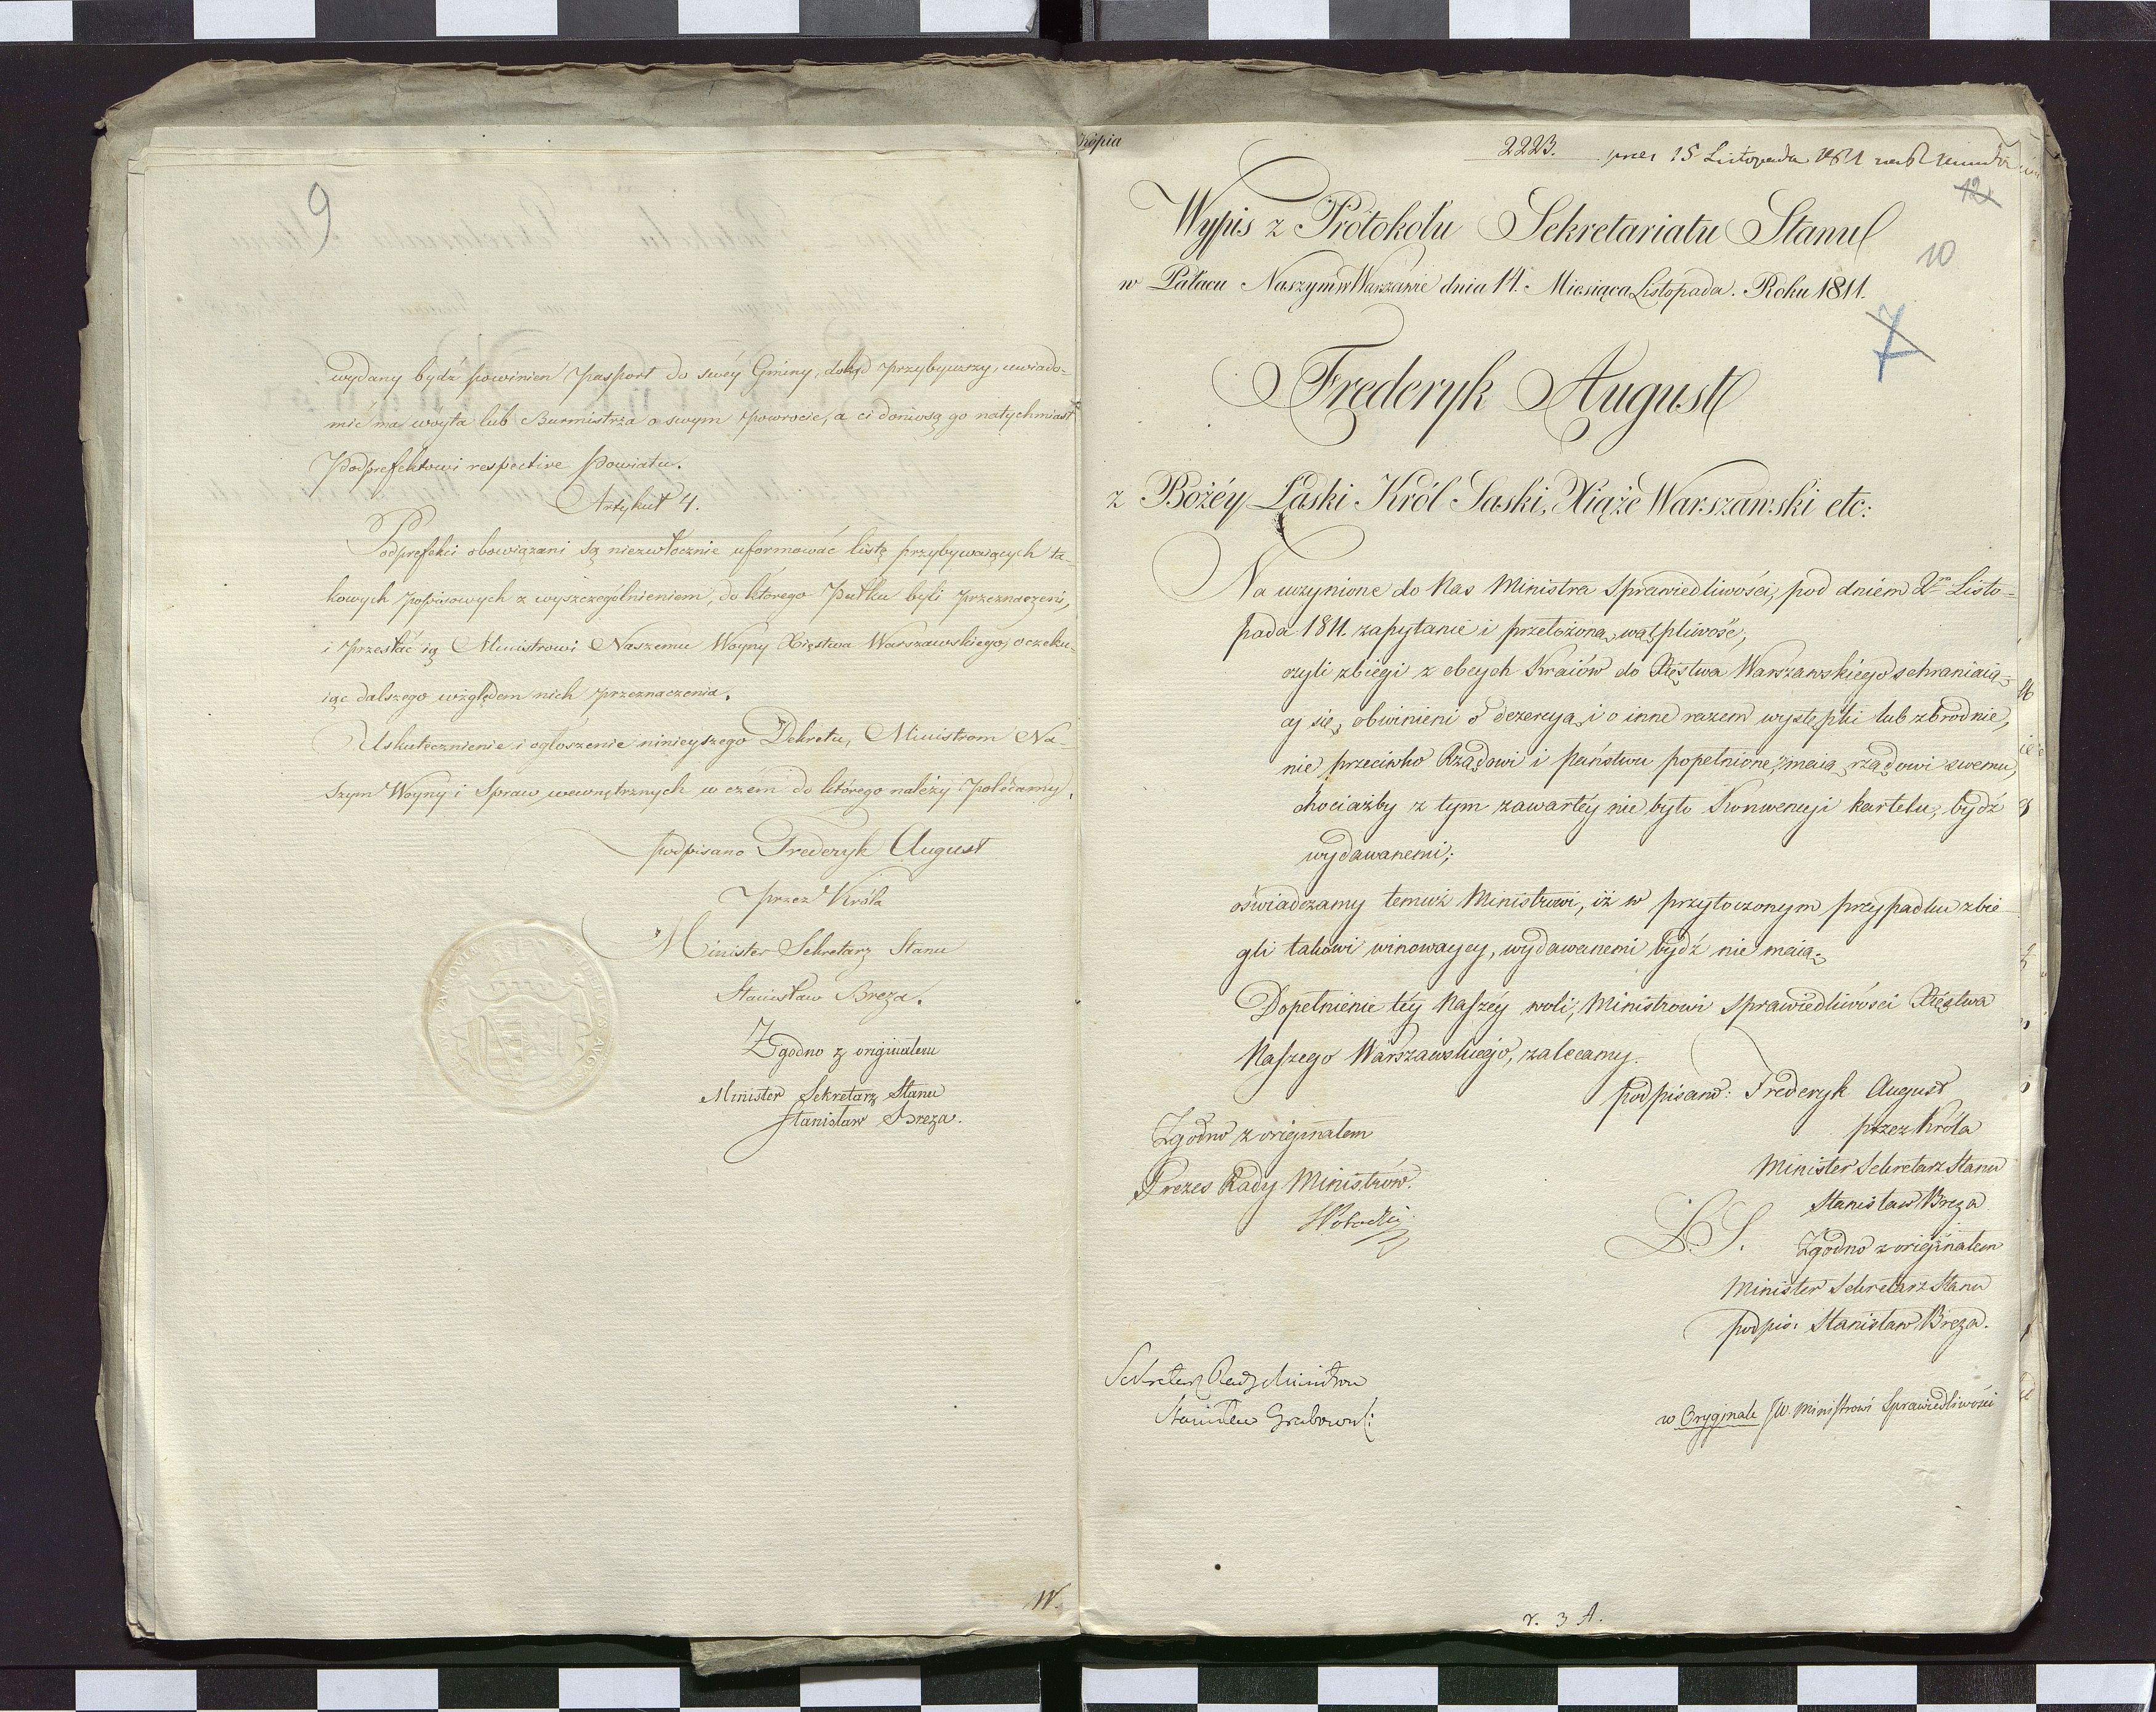 9
wydany bydź powinien Passport do swéy Gminy, dokąd przybywszy, uwiado-
mić ma woyta lub Burmistrza o swym powrocie, a ci doniosą go natychmiast
Podprefektowi respective Powiatu.
Artykuł 4.
Podprefekci obowiązani są niezwłocznie uformować listę przybywaiących ta-
kowych popisowych z wyszczególnieniem, do którego Pułku byli przeznaczeni,
i przesłać ią Ministrowi Naszemu Woyny Xięstwa Warszawskiego, oczeku-
iąc dalszego względem nich przeznaczenia.
Uskutecznienie i ogłoszenie ninieyszego Dekretu, Ministrom Na-
szym Woyny i Spraw wewnętrznych w czem do którego należy polecamy.
podpisano Frederyk August
przez Króla
Minister Sekretarz Stanu
Stanisław Breza.
Zgodno z originałem
Minister Sekretarz Stanu
Stanisław Breza.
W.
Kopia
2223. 15 Listopada 1811
12
Wypis z Protokołu Sekretariatu Stanu
10
w Pałacu Naszym w Warszawie dnia 14. Miesiąca Listopada. Roku 1811.
7
Frederyk August
z Bożéy Łaski Król Saski, Xiąże Warszawski etc:
Na uczynione do Nas Ministra Sprawiedliwości, pod dniem 2m Listo-
pada 1811. zapytanie i przełożoną wątpliwość,
czyli zbiegi z obcych Kraiów do Xięstwa Warszawskiego schraniaią-
cy się, obwinieni o dezercyą i o inne razem występki lub zbrodnie,
nie przeciwko Rządowi i państwu popełnione, maią rządowi swemu,
chociażby z tym zawartéy nie było Konwencyi kartelu, bydź
wydawanemi;
oświadczamy temuż Ministrowi, iż w przytoczonym przypadku zbie-
gli takowi winowaycy, wydawanemi bydź nie maią.
Dopełnienie téy Naszéy woli, Ministrowi Sprawiedliwości Xięstwa
Naszego Warszawskiego, zalecamy.
podpisano: Frederyk August
przez Króla
Minister Sekretarz Stanu
Stanisław Breza
L.S. Zgodno z originałem
Minister Sekretarz Stanu
podpis: Stanisław Breza.
Zgodno z originałem
Prezes Rady Ministrów.
SPotocki
Sekretarz Rady Ministrów
Stanisław Grabowski
w Oryginale JW. Ministrowi Sprawiedliwości
r. 3 A.